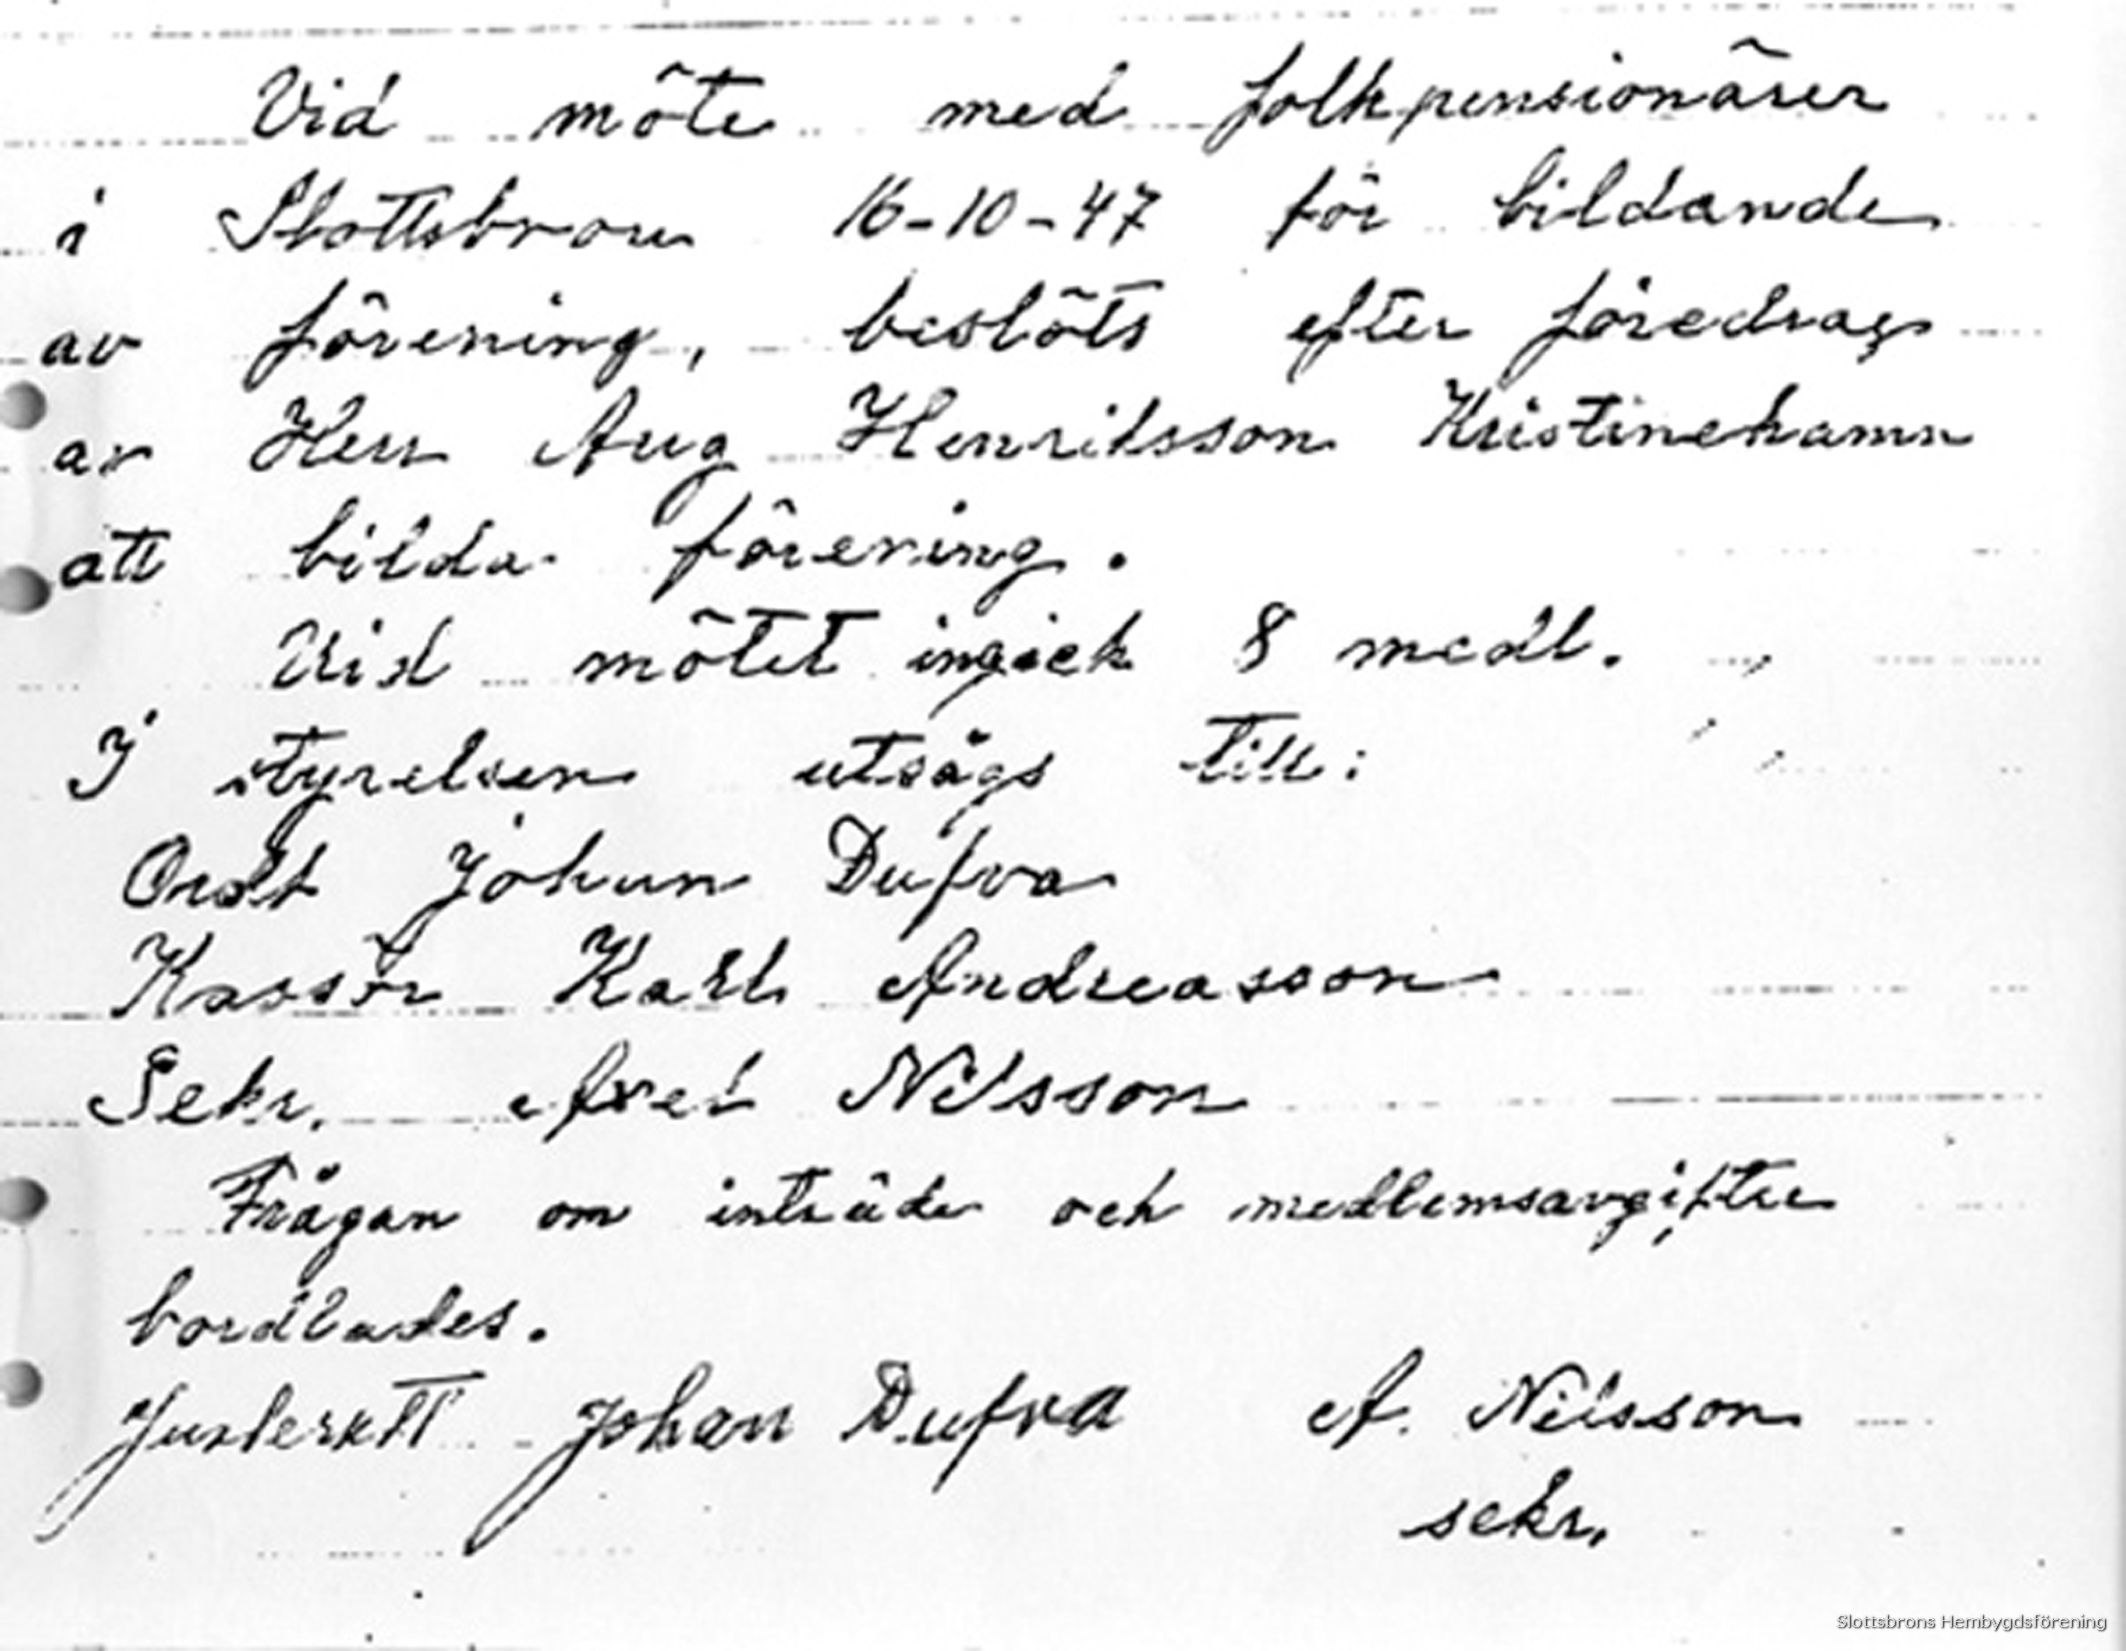 Vid möte med folkpensionärer
i Slottsbron 16-10-47 för bildande
av förening, beslöts efter föredrag
av Herr Aug Henriksson Kristinehamn
att bilda förening.
Vid mötet ingick 8 medl.
I styrelsen utsågs till:
Ordf Johan Dufva
Kassör Karl Andreasson
Sekr. Axel Nilsson
Frågan om inträde och medlemsavgifter
bordlades.
Justeratt Johan Dufva A. Nilsson
sekr.
Slottsbrons Hembygdsförening